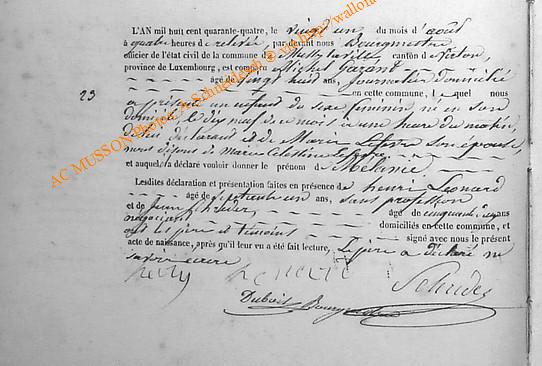 L'AN mil huit cent quarante-quatre, le vingt un du mois d'août
à quatre heures de relevée, par devant nous Bourgmestre
officier de l'état civil de la commune de Mussy la ville canton de Virton,
province de Luxembourg, est comparu Michel
âgé de vingt huit ans, journalier domicilié
23
en cette commune, lequel nous
a présenté un enfant de sexe féminin né en son
domicile le dix neuf de ce mois à une heure du matin,
de lui déclarant et de Marie Lefevre son épouse
et auquel a déclaré vouloir donner le prénom de Mélanie
Lesdites déclaration et présentation faites en présence de henri Léonard
âgé de ans, sans profession
et de Jean âgé de cinquante ans
négociant domiciliés en cette commune, et
ont les père et témoins signé avec nous le présent
acte de naissance, après qu'il leur en a été fait lecture, le père a déclaré ne
savoir écrire
Dubois Bourgmestre
AC MUSSON Photos: A Schneidesch © via http://wallon